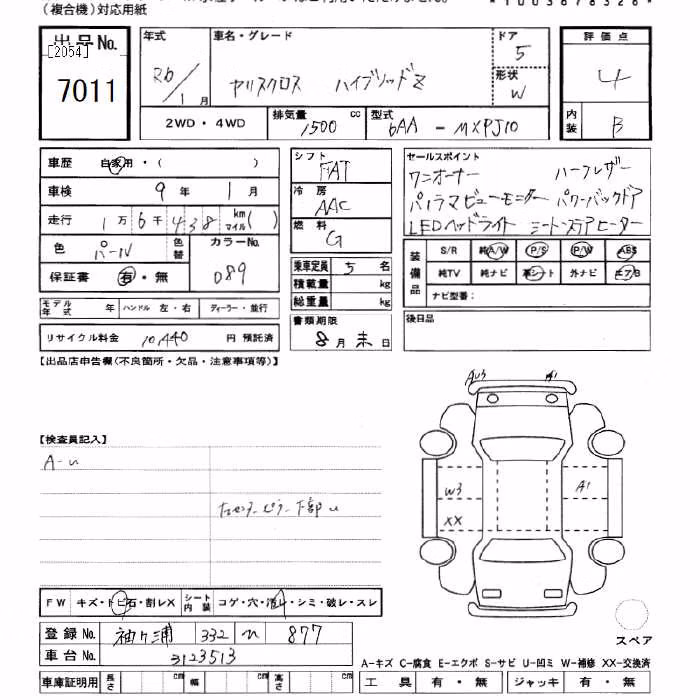 (複合機)対応用紙
出品No.
[2054]
7011
年式 R6/1月
車名・グレード ヤリスクロス ハイブリッドZ
ドア 5
形状 W
評価点 4
内装 B
2WD・4WD
排気量 1500 cc
型式 6AA-MXPJ10
車歴 自家用・( )
車検 9年 1月
走行 1万6千438 km マイル( )
色 パール 色替
カラーNo. 089
保証書 有・無
モデル年式 年 ハンドル 左・右 ディーラー・並行
リサイクル料金 10,440 円 預託済
シフト FAT
冷房 AAC
燃料 G
乗車定員 5 名
積載量 kg
総重量 kg
書類期限
8月末日
セールスポイント
ワンオーナー ハーフレザー
パノラマビューモニター パワーバックドア
LEDヘッドライト シートステアヒーター
装備品
S/R 純A/W P/S P/W ABS
純TV 純ナビ 革シート 外ナビ エアB
ナビ型番:
後日品
【出品店申告欄(不良箇所・欠品・注意事項等)】
【検査員記入】
A-U
左センターピラー下部U
AU3 A1
W3 A1
XX
FW キズ・トビ石・割レX シート内装 コゲ・穴・汚レ・シミ・破レ・スレ
登録No. 袖ヶ浦 332 877
車台No. 3123513
スペア
A-キズ C-腐食 E-エクボ S-サビ U-凹ミ W-補修 XX-交換済
車庫証明用 長さ cm 幅 cm 高さ cm
工具 有・無 ジャッキ 有・無